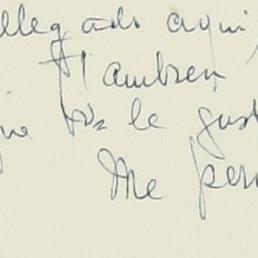 llegado aqui
Tambien
que Vs le gust
Me per